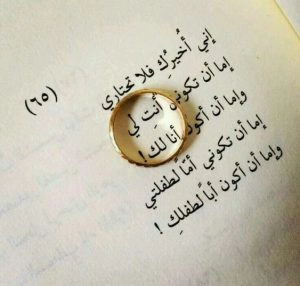 إني أُخيرُكِ فلا تحتاري
إما أن تكوني أنت لي
وإما أن أكون أنا لك!
إما أن تكوني أمّاً لطفلتي
وإما أن أكون أباً لطفلكِ !
(٦٥)